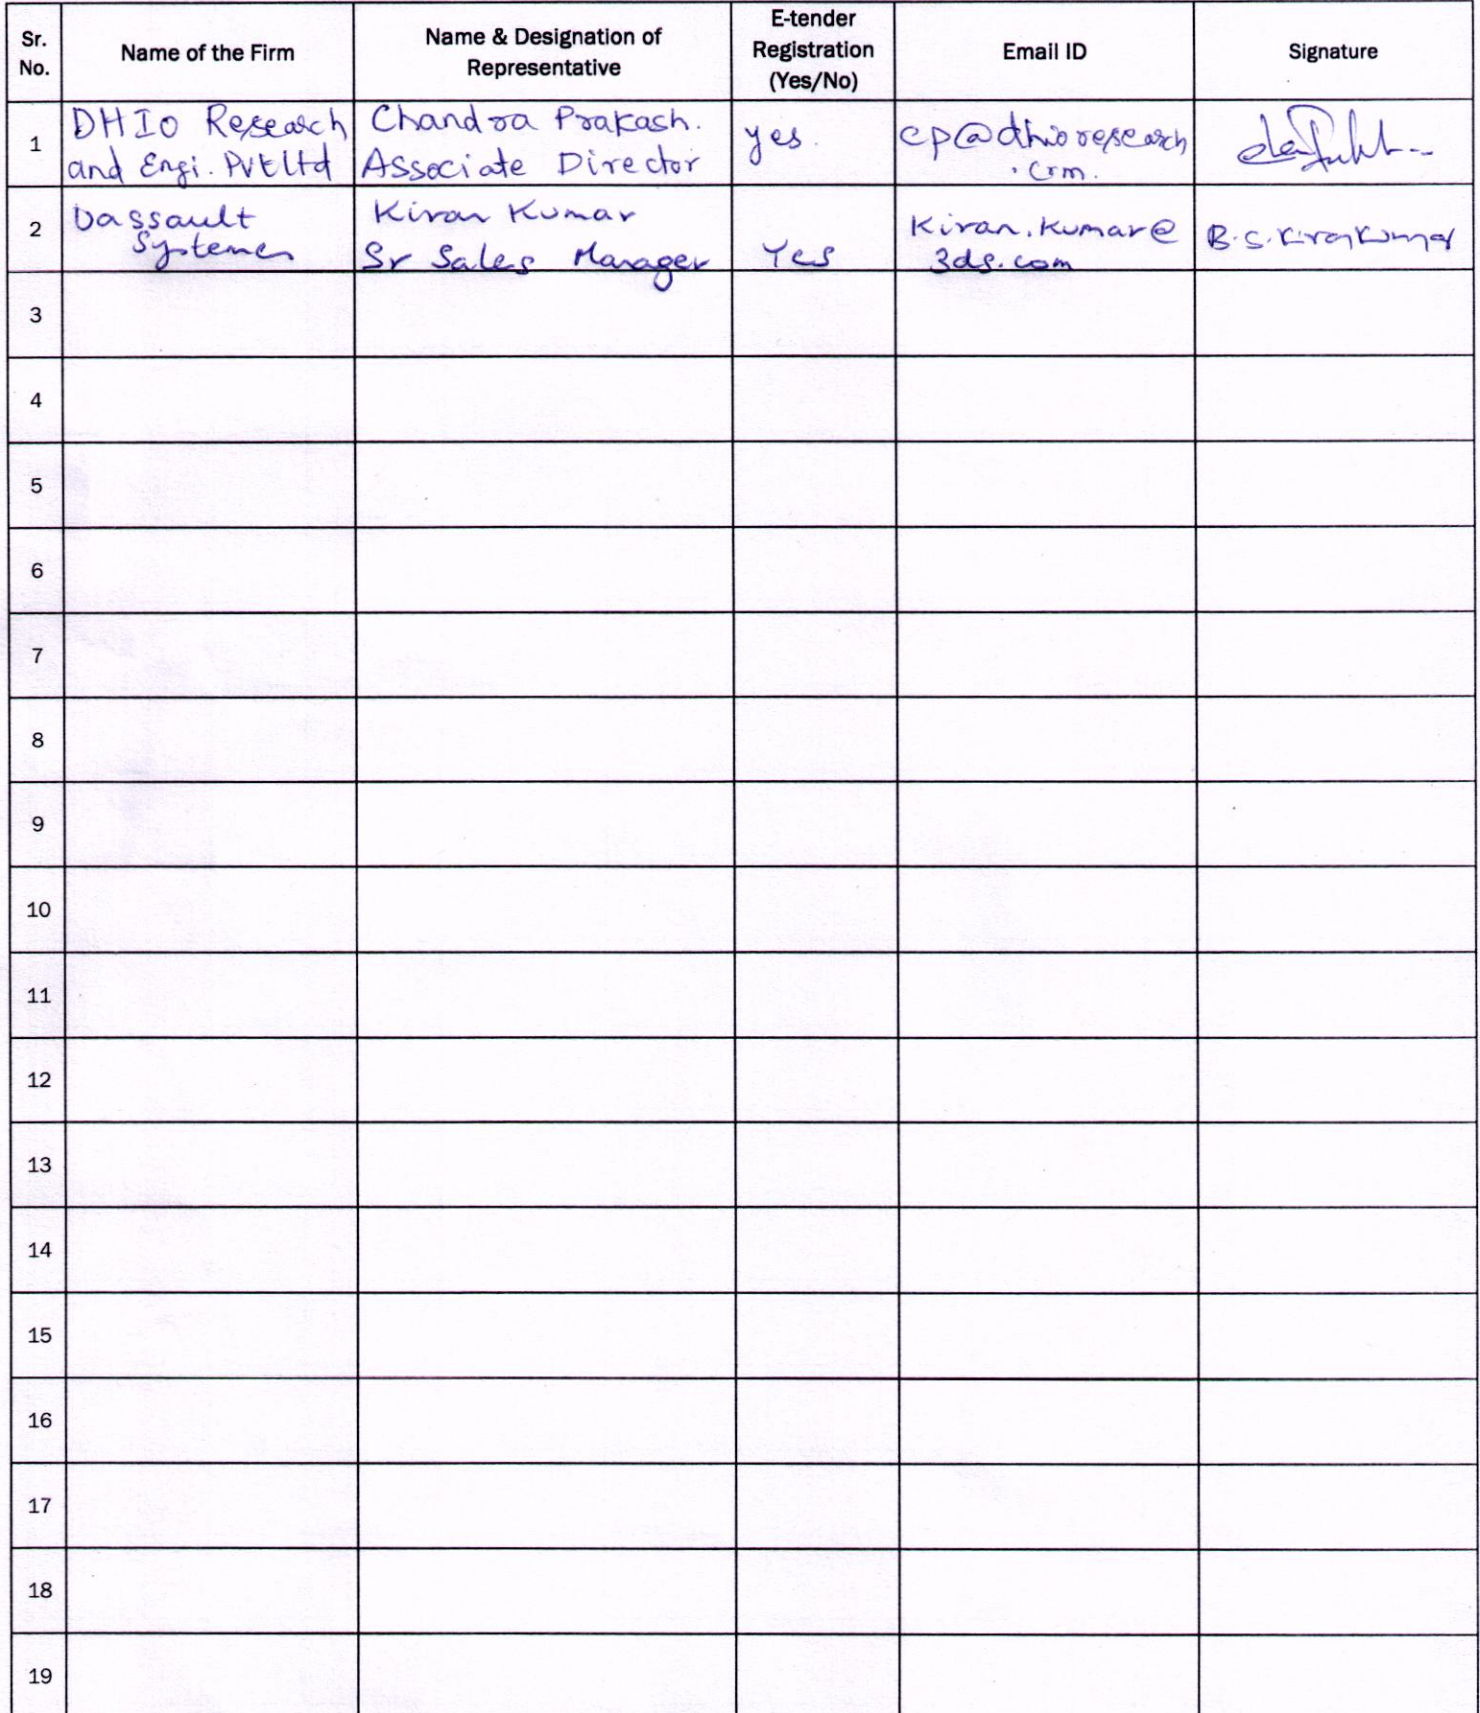 Sr. No. Name of the Firm Name & Designation of Representative E-tender Registration (Yes/No) Email ID Signature
1 DHIO Research and Engi. Pvt Ltd Chandra Prakash. Associate Director yes. cp@dhioresearch.com.
2 Dassault Systemes Kiran Kumar Sr Sales Manager Yes Kiran.Kumar@3ds.com B.S. Kiran Kumar
3
4
5
6
7
8
9
10
11
12
13
14
15
16
17
18
19